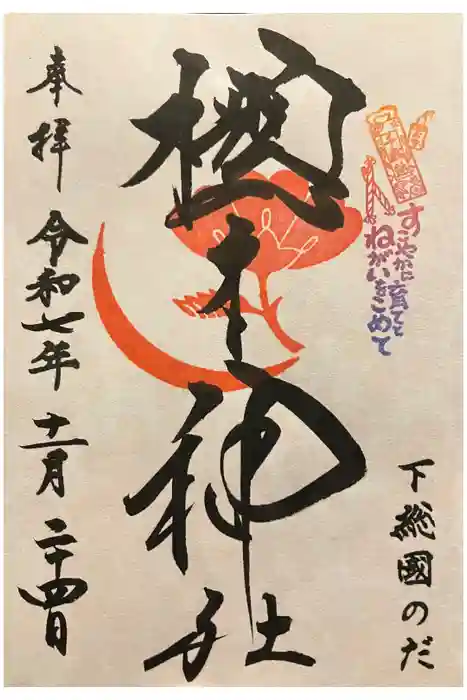 すこやかに育てと
ねがいをこめて
下総國のだ
櫻木神社
奉拝 令和七年十一月二十四日